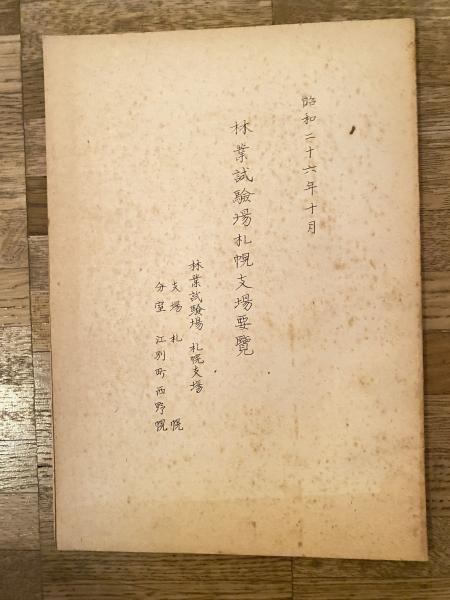 昭和二十六年十月
林業試驗場札幌支場要覽
林業試驗場 札幌支場
支場 札幌
分室 江別町西野幌